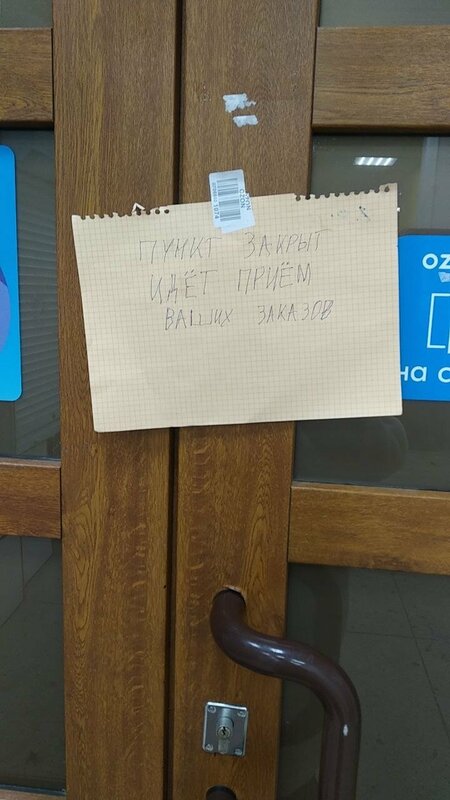 ПУНКТ ЗАКРЫТ
ИДЁТ ПРИЁМ
ВАШИХ ЗАКАЗОВ
OZON
1074
oz
на с